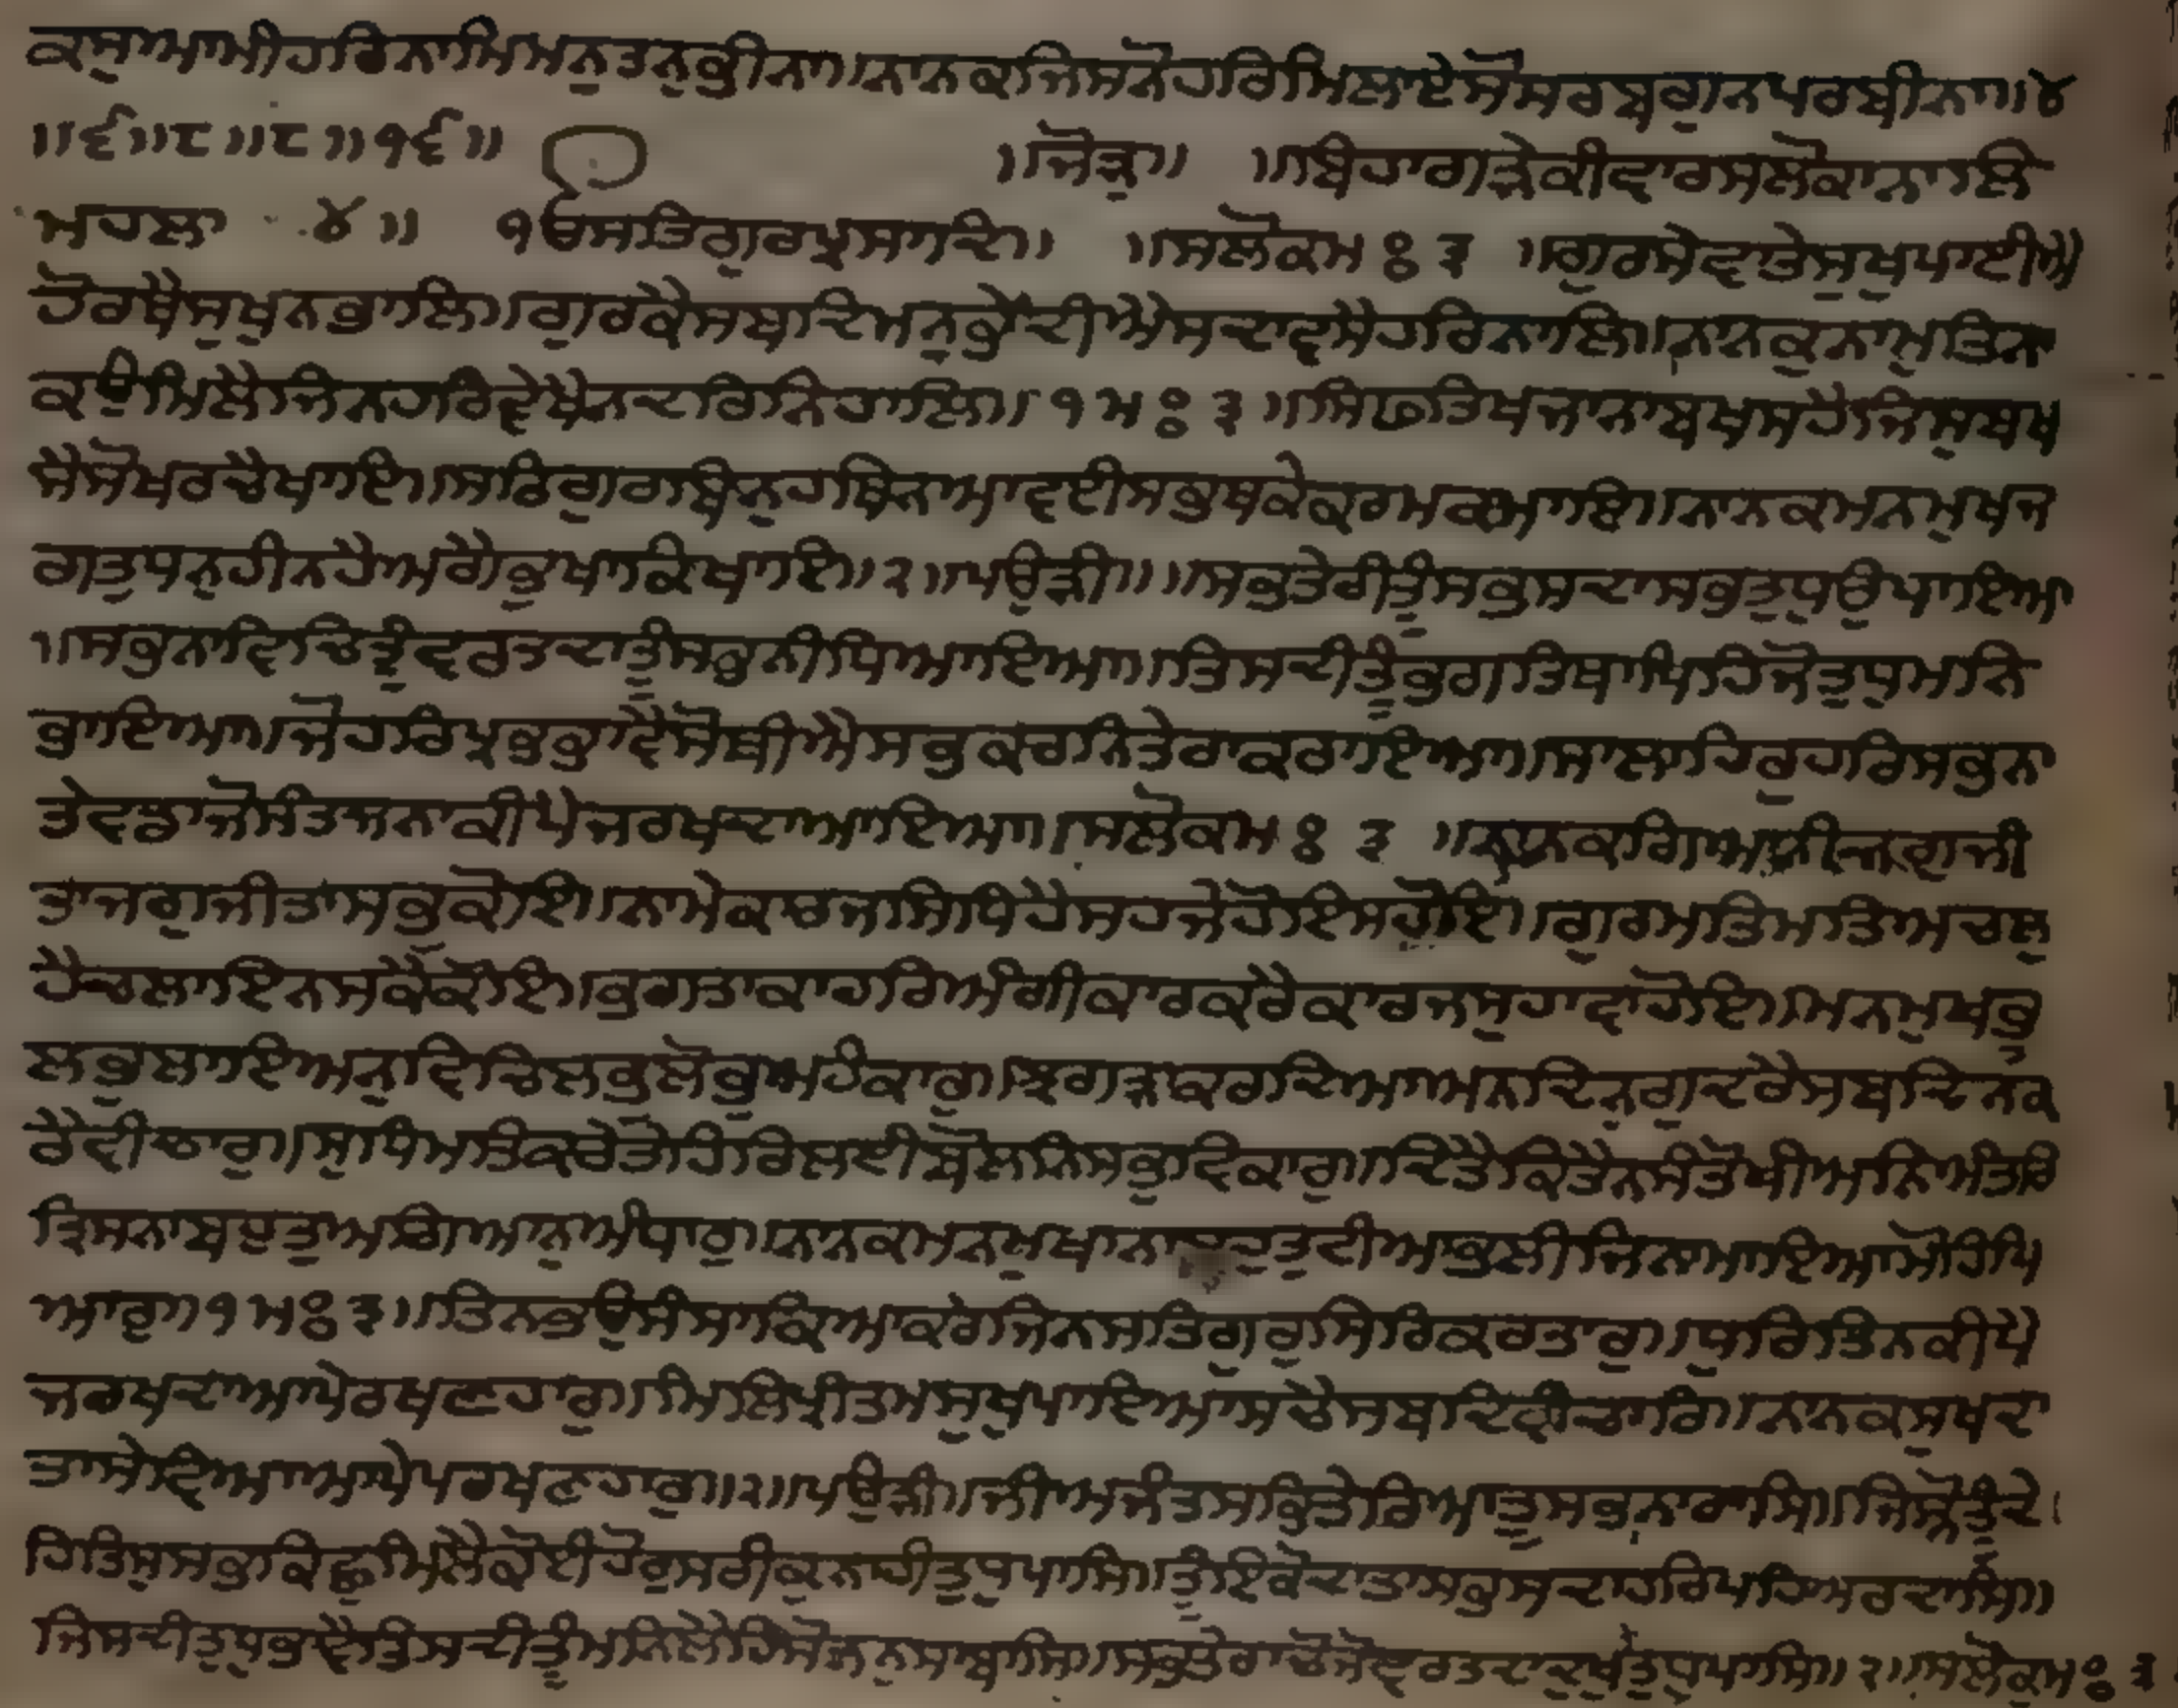 ਕਸੁਆਮੀਹਰਿਨਾਮਿਮਨੁਤਨੁਭੀਨਾ॥ਨਾਨਕਜਿਸਨੋਹਰਿਮਿਲਾਏਸੋਸਰਬਗੁਨਪਰਬੀਨਾ॥੪
॥੬॥੮॥੮॥੧੬॥ ॥ਜੋੜੁ॥ ॥ਬਿਹਾਗੜੇਕੀਵਾਰਸਲੋਕਾਨਾਲਿ
ਮਹਲਾ ੪॥ ੧ੳਸਤਿਗੁਰਪ੍ਰਸਾਦਿ॥ ॥ਸਲੋਕਮ ੩ ॥ਗੁਰਸੇਵਤੇਸੁਖੁਪਾਈਐ
ਹੋਰਥੈਸੁਖੁਨਭਾਲਿ॥ਗੁਰਕੈਸਬਦਿਮਨੁਭੇਦੀਐਸਦਾਵਸੈਹਰਿਨਾਲਿ॥ਨਾਨਕੁਨਾਮੁਤਿਨਾ
ਕਉਮਿਲੈਜਿਨਹਰਿਵੇਖੈਨਦਰਿਨਿਹਾਲਿ॥੧ਮ ੩॥ਸਿਫਤਿਖਜਾਨਾਬਖਸਹੈਜਿਸੁਬਖ
ਸੈਸੋਖਰਚੈਖਾਇ॥ਸਤਿਗੁਰਬਿਨੁਹਥਿਨਆਵਈਸਭਥਕੇਕਰਮਕਮਾਇ॥ਨਾਨਕਮਨਮੁਖਜ
ਗਤੁਧਨਹੀਨਹੈਅਗੈਭੁਖਾਕਿਖਾਇ॥੨॥ਪਉੜੀ॥॥ਸਭਤੇਰੀਤੂਸਭੁਸਦਾਸਭੁਤੁਧੁਉਪਾਇਆ
॥ਸਭਨਾਵਿਚਿਤੂਵਰਤਦਾਤੂਸਭਨੀਧਿਆਇਆ॥ਤਿਸਦੀਤੂਭਗਤਿਥਾਇਪਾਇਹਿਜੋਤੁਧੁਮਨਿ
ਭਾਇਆ॥ਜੋਹਰਿਪ੍ਰਭਭਾਵੈਸੋਥੀਐਸਭਿਕਰਨਿਤੇਰਾਕਰਾਇਆ॥ਸਾਲਾਹਿਹੁਹਰਿਸਭਨਾ
ਤੇਵਡਾਜੋਸੰਤਜਨਾਕੀਪੈਜਰਖਦਾਆਇਆ॥ਸਲੋਕਮ ੩ ॥ਨਾਨਕਗਿਆਨੀਜਗੁਜੀ
ਤਾਜਗੁਜੀਤਾਸਭੁਕੋਇ॥ਨਾਮੇਕਾਰਜਸਿਧਿਹੈਸਹਜੇਹੋਇਸੁਹੋਇ॥ਗੁਰਮਤਿਮਤਿਅਚਲੁ
ਹੈਚਲਾਇਨਸਕੈਕੋਇ॥ਭਗਤਾਕਾਹਰਿਅੰਗੀਕਾਰਕਰੇਕਾਰਜਸੁਹਾਵਾਹੋਇ॥ਮਨਮੁਖਭੂ
ਲਭੁਲਾਇਅਨੁਵਿਚਿਲਭੁਲੋਭੁਅਹੰਕਾਰੁ॥ਝਗੜਾਕਰਦਿਆਅਨਦਿਨੁਗੁਦਰੈਸਬਦਿਨਕ
ਰੈਵੀਚਾਰੁ॥ਸੁਧਿਮਤਿਕਰਤੈਹਿਰਿਲਈਬੋਲਨਿਸਭੁਵਿਕਾਰੁ॥ਦਿਤੈਕਿਤੈਨਸੰਤੋਖੀਅਨਿਅੰਤਰਿ
ਤ੍ਰਿਸਨਾਬਹੁਤੁਅਗਿਆਨੁਅੰਧਾਰੁ॥ਨਾਨਕਮਨਮੁਖਾਨਾਲਹੁਤੁਟੀਆਭਲੀਜਿਨਾਮਾਇਆਮੋਹਿਪਿ
ਆਰੁ॥੧ਮ ੩॥ਤਿਨਭਉਸੰਸਾਕਿਆਕਰੇਜਿਨਸਤਿਗੁਰੁਸਿਰਿਕਰਤਾਰੁ॥ਧੁਰਿਤਿਨਕੀਪੈ
ਜਰਖਦਾਆਪੇਰਖਣਹਾਰੁ॥ਮਿਲਿਪ੍ਰੀਤਮਸੁਖੁਪਾਇਆਸਚੈਸਬਦਿਵੀਚਾਰਿ॥ਨਾਨਕਸੁਖਦਾ
ਤਾਸੇਵਿਆਆਪੇਪਰਖਣਹਾਰੁ॥੨॥ਪਉੜੀ॥ਜੀਅਜੰਤਸਭਿਤੇਰਿਆਤੂਸਭਨਾਰਾਸਿ॥ਜਿਸਨੋਤੂਦੇ
ਹਿਤਿਸੁਸਭੁਕਿਛੁਮਿਲੈਕੋਈਹੋਰੁਸਰੀਕੁਨਾਹੀਤੁਧੁਪਾਸਿ॥ਤੂਇਕੋਦਾਤਾਸਭਸਦਾਹਰਿਪਹਿਅਰਦਾਸਿ॥
ਜਿਸਦੀਤੁਧੁਭਾਵੈਤਿਸਦੀਤੂਮੰਨਿਲੈਹਿਸੋਜਨੁਸਾਬਾਸਿ॥ਸਭੁਤੇਰਾਚੋਜੁਵਰਤਦਾਦੁਖੁਸੁਖੁਤੁਧੁਪਾਸਿ॥੨॥ਸਲੋਕਮ ੩